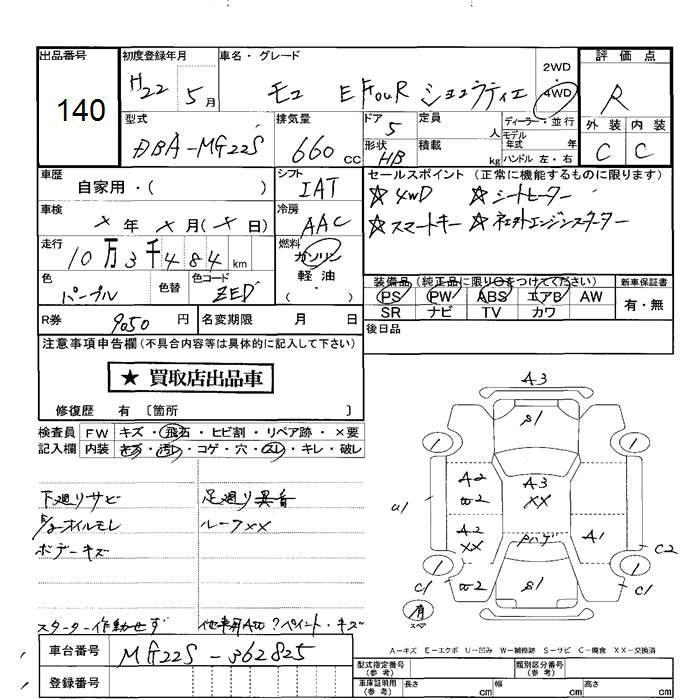 出品番号 初度登録年月 車名・グレード 2WD 評価点
140 H22 5月 モコ E FouR ショコラティエ 4WD R
型式 排気量 ドア 定員 ディーラー・並行 外装 内装
DBA-MG22S 660cc 5 人 モデル年式 年 C C
形状 HB 積載 kg ハンドル 左・右
車歴 シフト セールスポイント (正常に機能するものに限ります)
自家用・( ) IAT ☆4WD ☆シートヒーター
車検 冷房 ☆スマートキー ☆社外エンジンスターター
×年×月(×日) AAC
走行 燃料
10万3千484km ガソリン
軽油
( ・ )
色 色替 色コード 装備品 (純正品に限り○をつけてください) 新車保証書
パープル ZED PS PW ABS エアB AW 有・無
R券 9050円 名変期限 月 日 SR ナビ TV カワ
後日品
注意事項申告欄(不具合内容等は具体的に記入して下さい)
★ 買取店出品車
修復歴 有 〔箇所 〕
検査員 FW キズ・飛石・ヒビ割・リペア跡・×要
記入欄 内装 キズ・汚レ・コゲ・穴・スレ・キレ・破レ
下廻りサビ 足廻り異音
オイルモレ ルーフxx
ボデーキズ
スターター作動せず ペイント・キズ
A3
S1
A2 A3
W2 XX
U1
A2 A1
XX Pハゲ C2
C1 W2 S1 C1
有
スペア
A-キズ E-エクボ U-凹み W-補修跡 S-サビ C-腐食 XX-交換済
車台番号 MG22S-362825
登録番号
型式指定番号(参考) 類別区分番号(参考)
車庫証明用(参考) 長さ cm 幅 cm 高さ cm